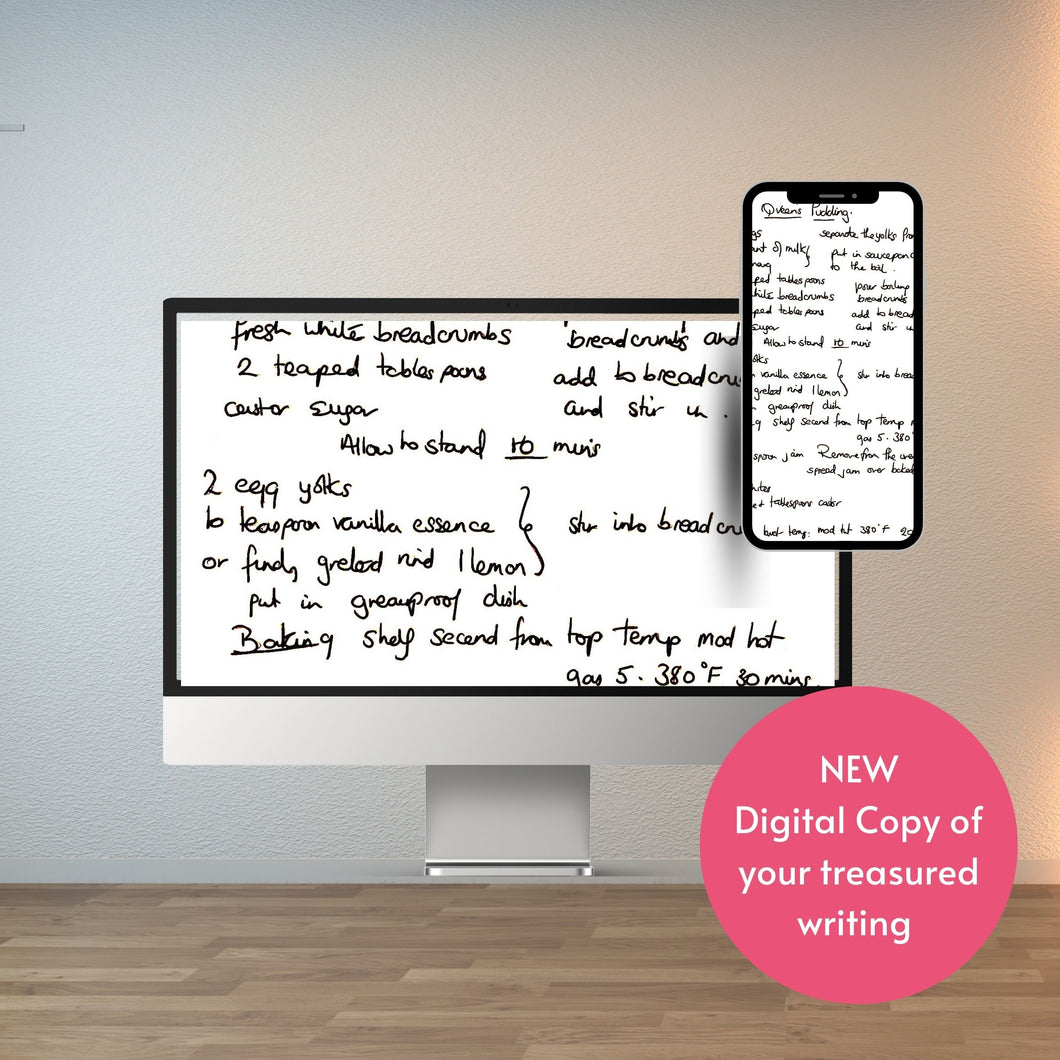 fresh white breadcrumbs 'breadcrumbs' and
2 teaped tablespoons add to breadcru
castor sugar and stir in .
Allow to stand 10 mins
2 egg yolks
teaspoon vanilla essence stir into breadcru
or finely grated rind 1 lemon
put in greaseproof dish
Baking shelf second from top Temp mod hot
gas 5 . 380°F 30 mins
Queens Pudding.
gs separate the yolks fro
of milk put in saucepan
to the boil .
ped tablespoons pour boiling
white breadcrumbs breadcrumbs
ped tablespoons add to bread
sugar and stir in
Allow to stand 10 mins
olks
vanilla essence stir into bread
grated rind 1 lemon
greaseproof dish
g shelf second from top Temp
gas 5 . 380°
spoon jam Remove from the
spread jam over baked
hites
tablespoons castor
temp: mod hot 380°F 20
NEW
Digital Copy of
your treasured
writing